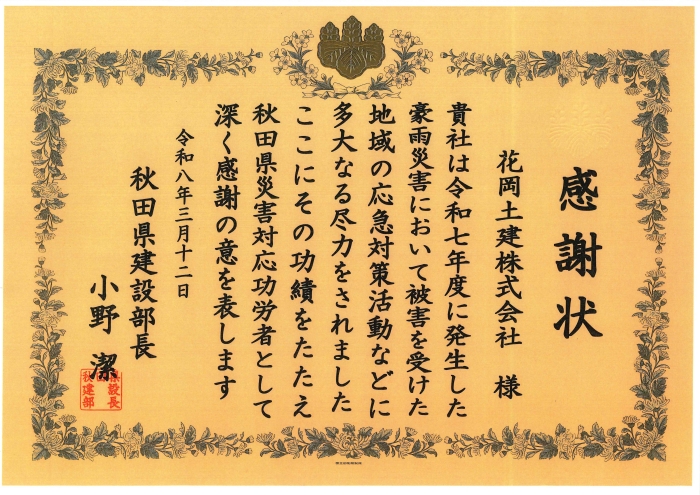 感謝状
花岡土建株式会社 様
貴社は令和七年度に発生した
豪雨災害において被害を受けた
地域の応急対策活動などに
多大なる尽力をされました
ここにその功績をたたえ
秋田県災害対応功労者として
深く感謝の意を表します
令和八年三月十二日
秋田県建設部長
小野 潔